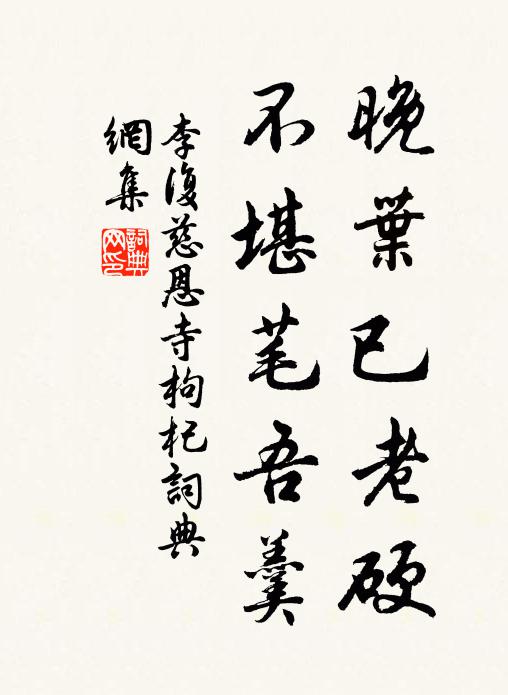 晚葉已老硬
不堪芼吾羹
李復慈恩寺枸杞詞典
網集
詞典
网印